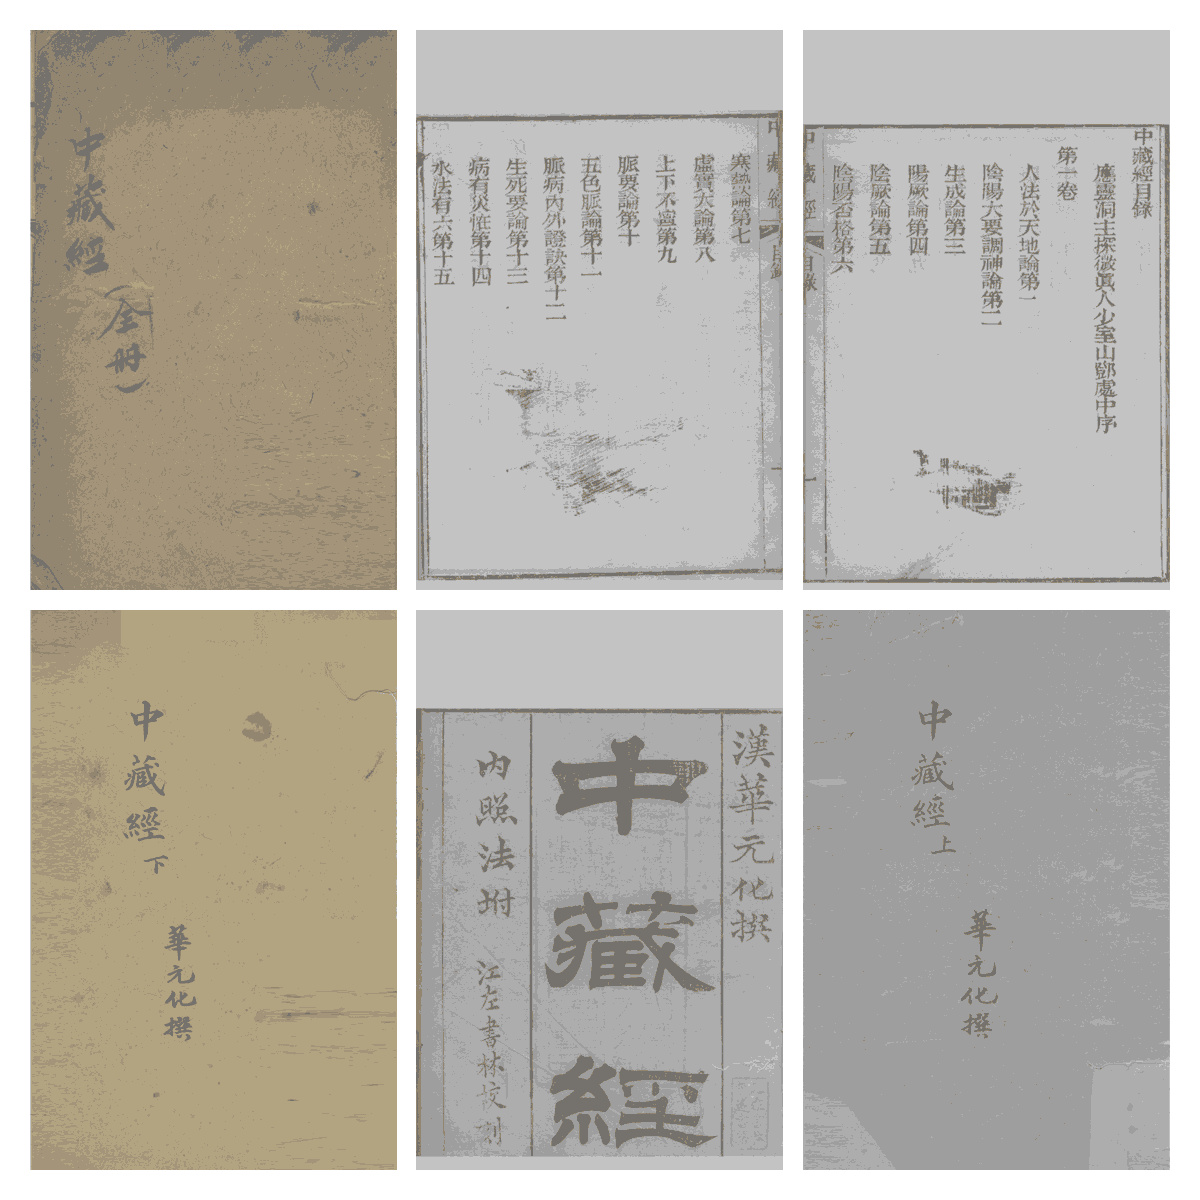 中藏經
(全冊)
中藏經 目錄
寒熱論第七
虛實大論第八
上下不寧第九
脈要論第十
五色脈論第十一
脈病內外證訣第十二
生死要論第十三
病有災怪第十四
水法有六第十五
中藏經目錄
應靈洞主探微真人少室山鄧處中序
第一卷
人法於天地論第一
陰陽大要調神論第二
生成論第三
陽厥論第四
陰厥論第五
陰陽否格第六
中藏經 目錄 一
中藏經下
華元化撰
漢華元化撰
中藏經
內照法坿
江左書林校刊
中藏經上
華元化撰